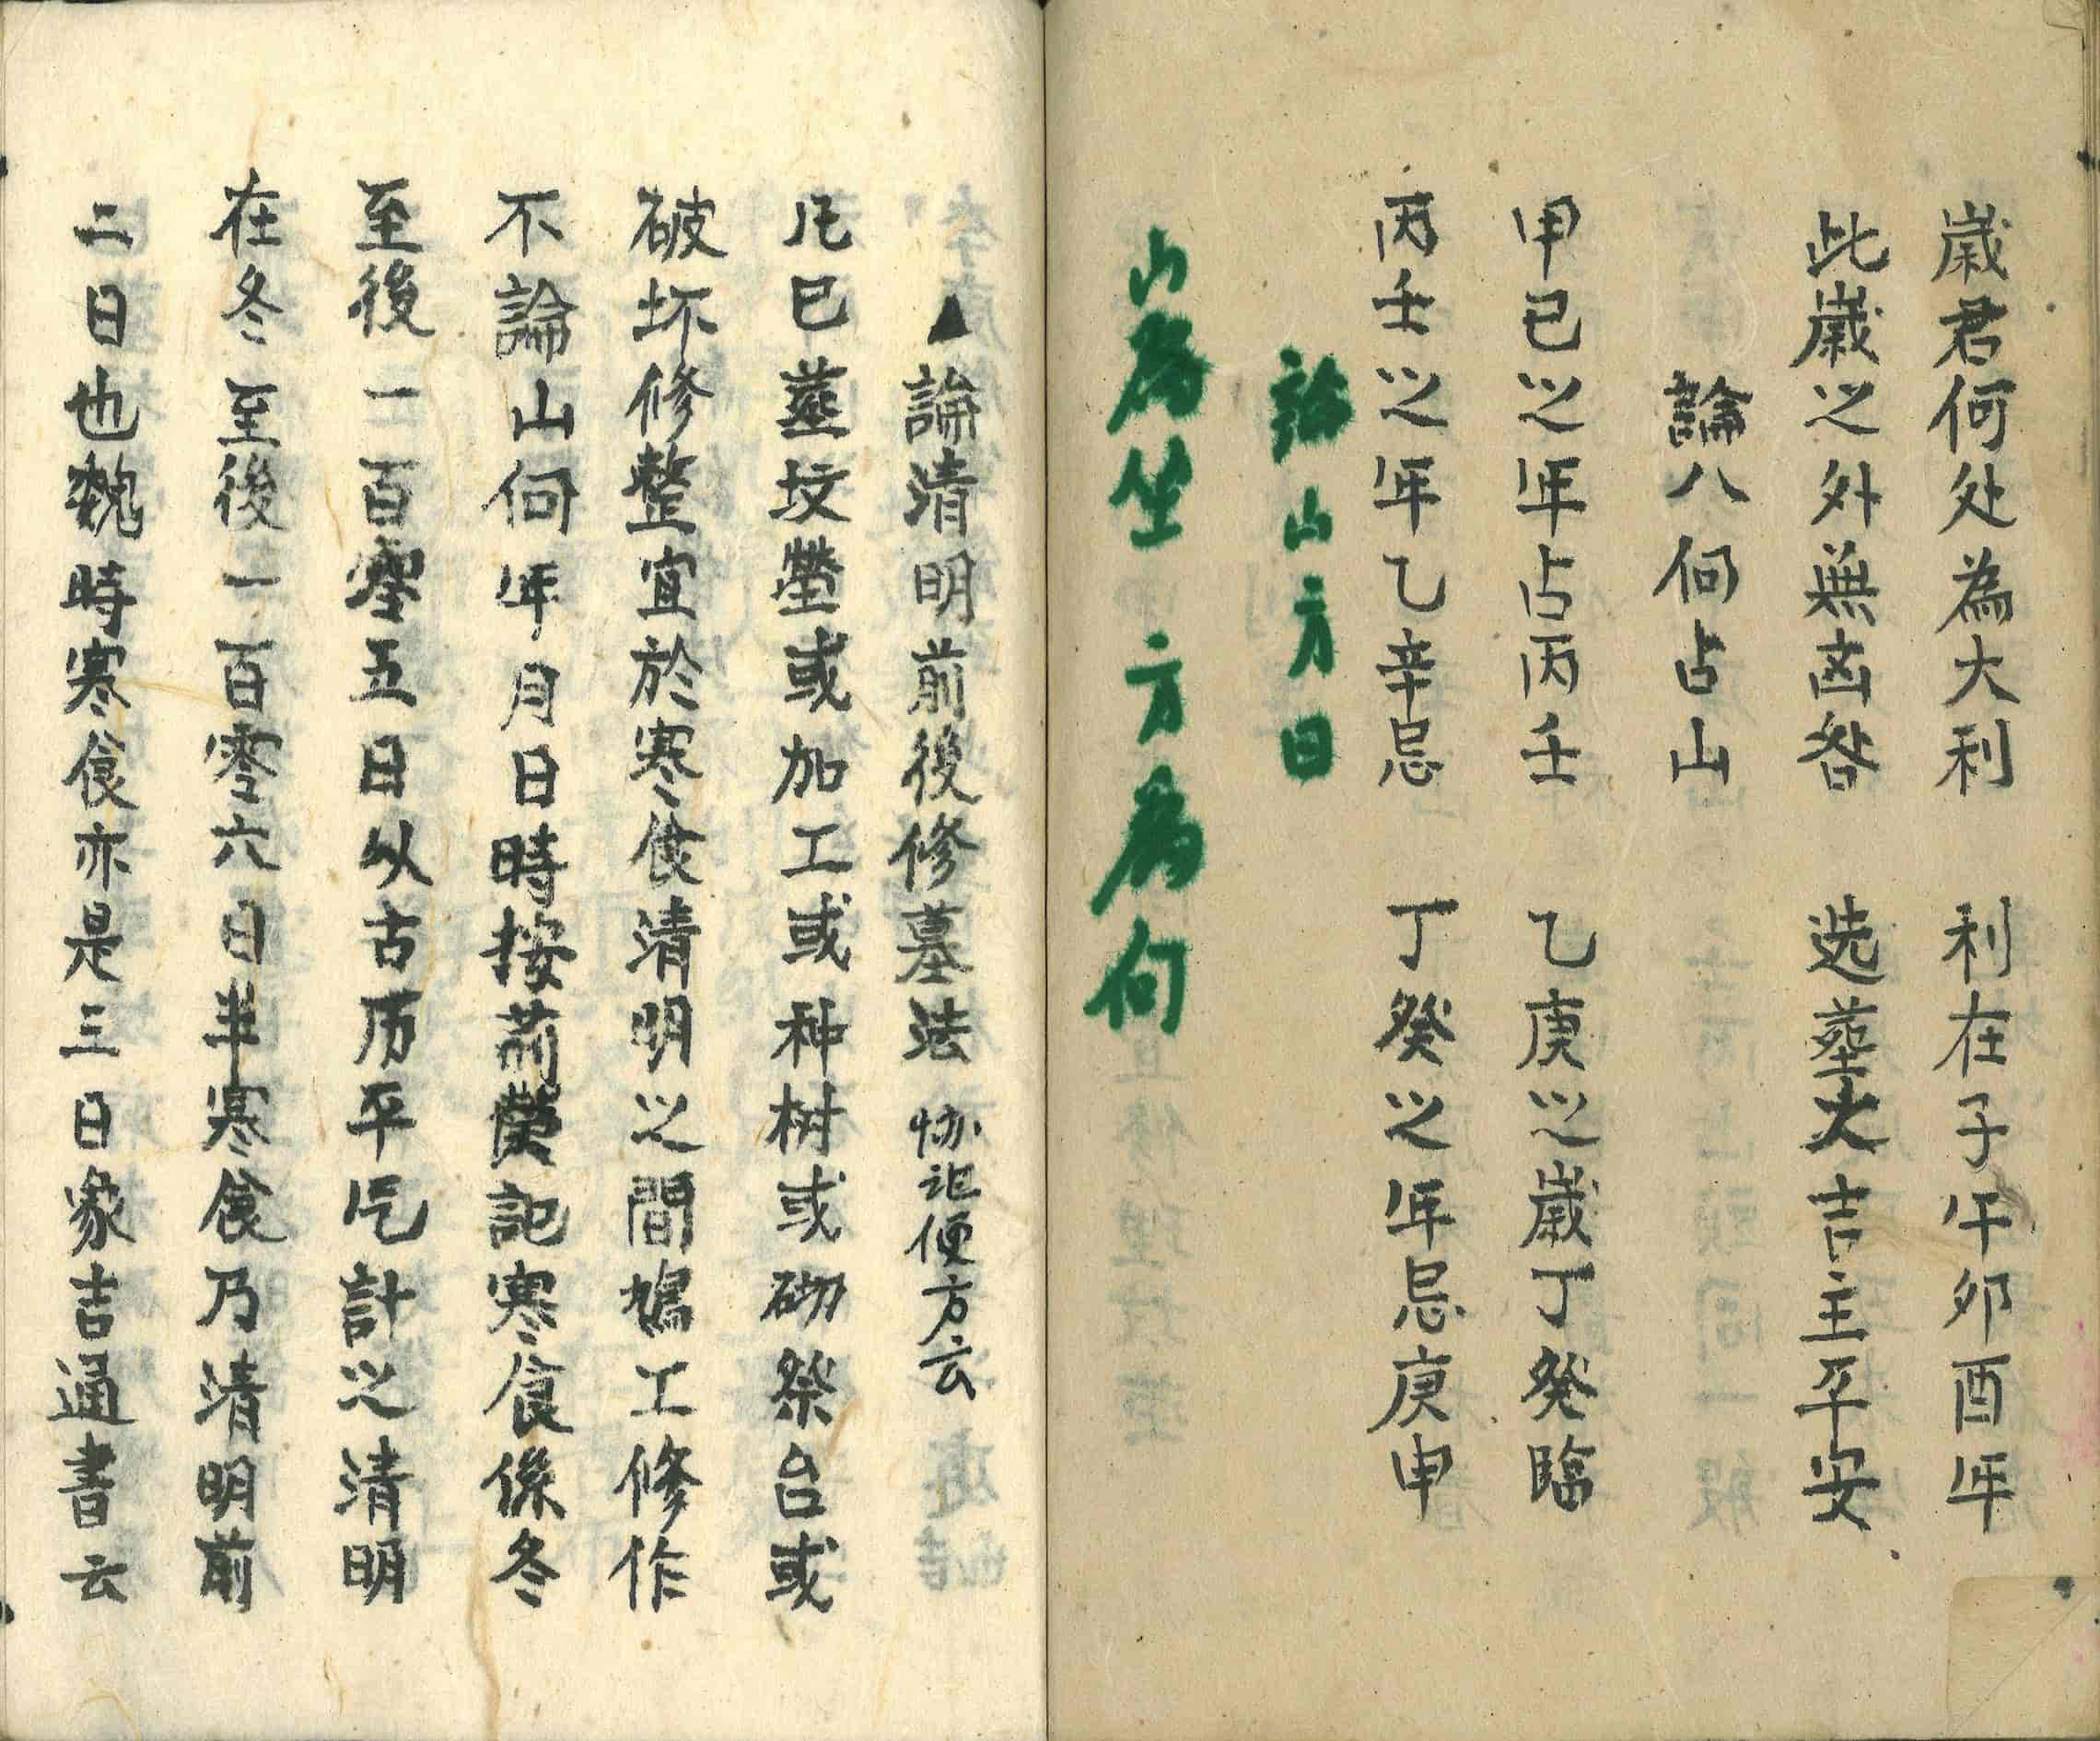 歲君何处為大利　利在子午卯酉年
此歲之外無凶咎　选塟大吉主平安
論八向占山
甲己之年占丙壬　乙庚之歲丁癸臨
丙壬之年乙辛忌　丁癸之年忌庚申
論山方日
山為坐　方為向
▲論清明前後修墓法　协記便方云
凡已塟坟塋或加工或种树或砌祭台或
破坏修整宜於寒食清明之間鳩工修作
不論山向年月日時按荊記寒食係冬
至後一百零五日以古历平气計之清明
在冬至後一百零六日半寒食乃清明前
二日也魏時寒食亦是三日象吉通書云